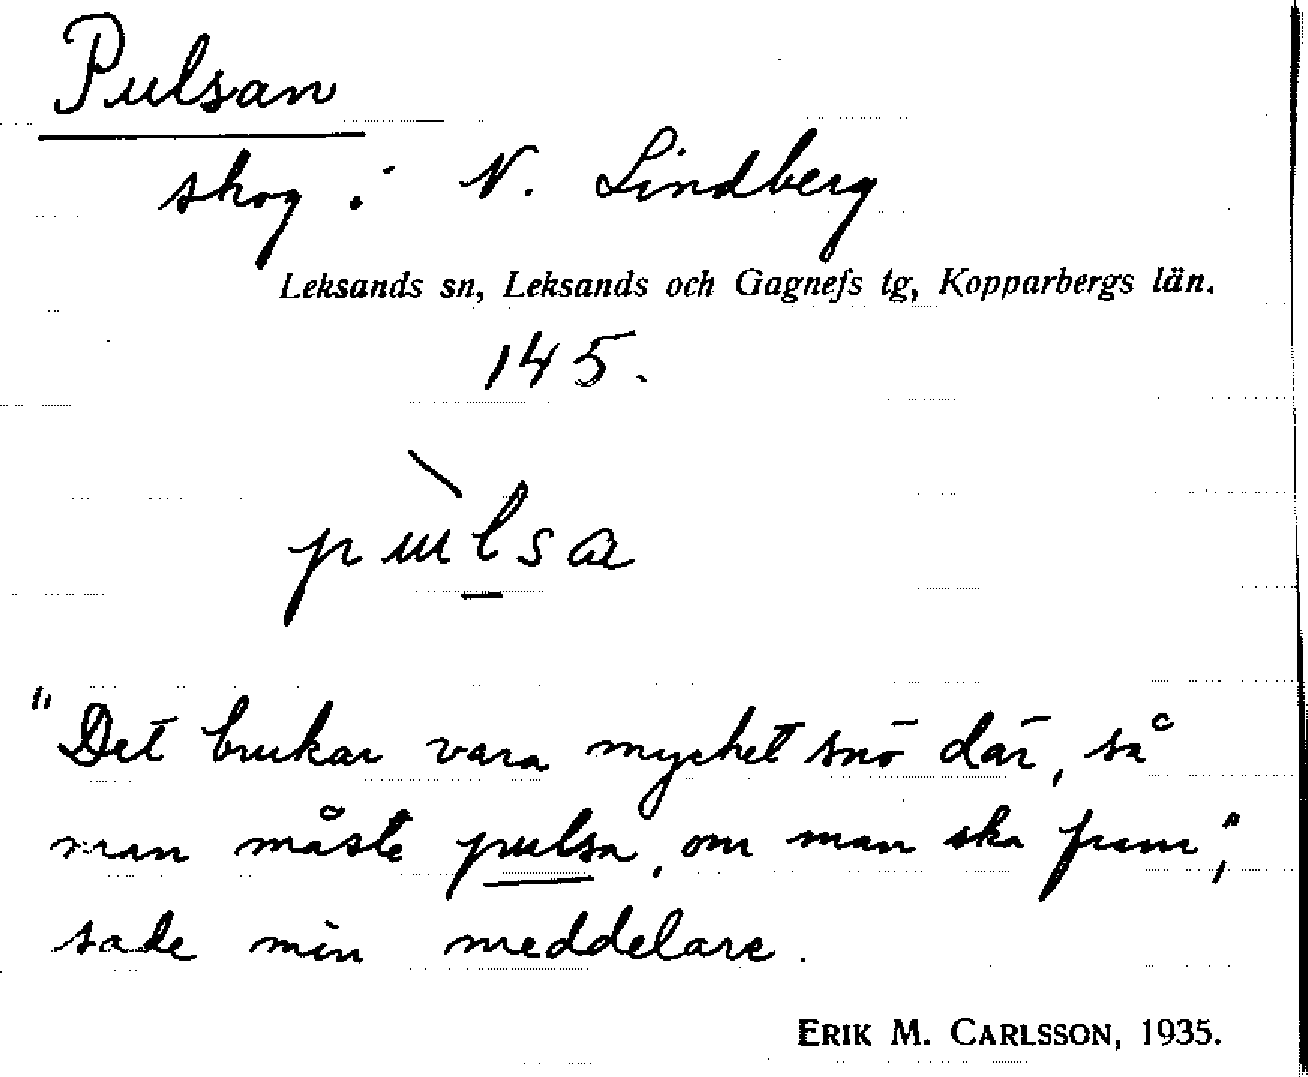 Pulsan
skog i N. Lindberg
Leksands sn, Leksands och Gagnefs tg, Kopparbergs län.
145.
pùlsa
"Det brukar vara mycket snö där, så
man måste pulsa, om man ska fram",
sade min meddelare.
ERIK M. CARLSSON, 1935.